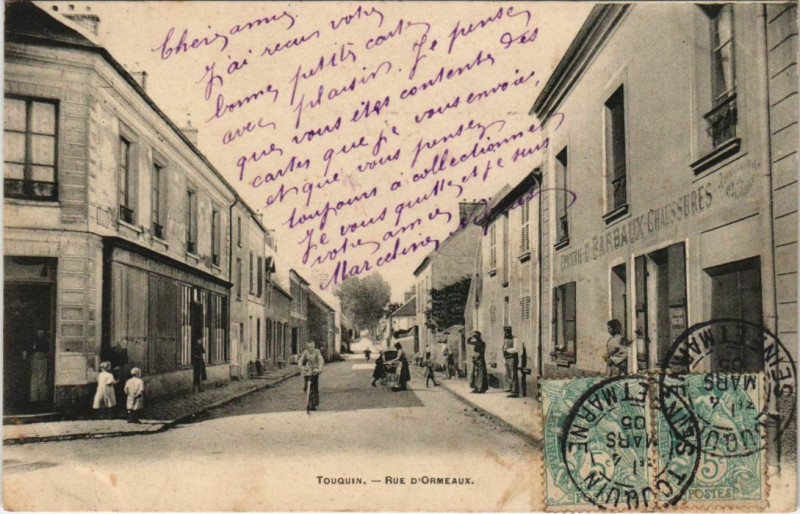 Chère amie
J'ai recus votre
bonne petite carte
avec plaisir. Je pense
que vous êtes contente des
cartes que je vous envoie,
et que vous pensez
toujours à collectionner
Je vous quitte et je suis
votre amie
Marceline
EPICERIE-D. BARBAUX-CHAUSSURES
TOUQUIN. — RUE D'ORMEAUX.
TOUQUIN
SEINE ET MARNE
4
MARS
05
5c
POSTES
TOUQUIN
SEINE ET MARNE
4
MARS
05
5c
POSTES